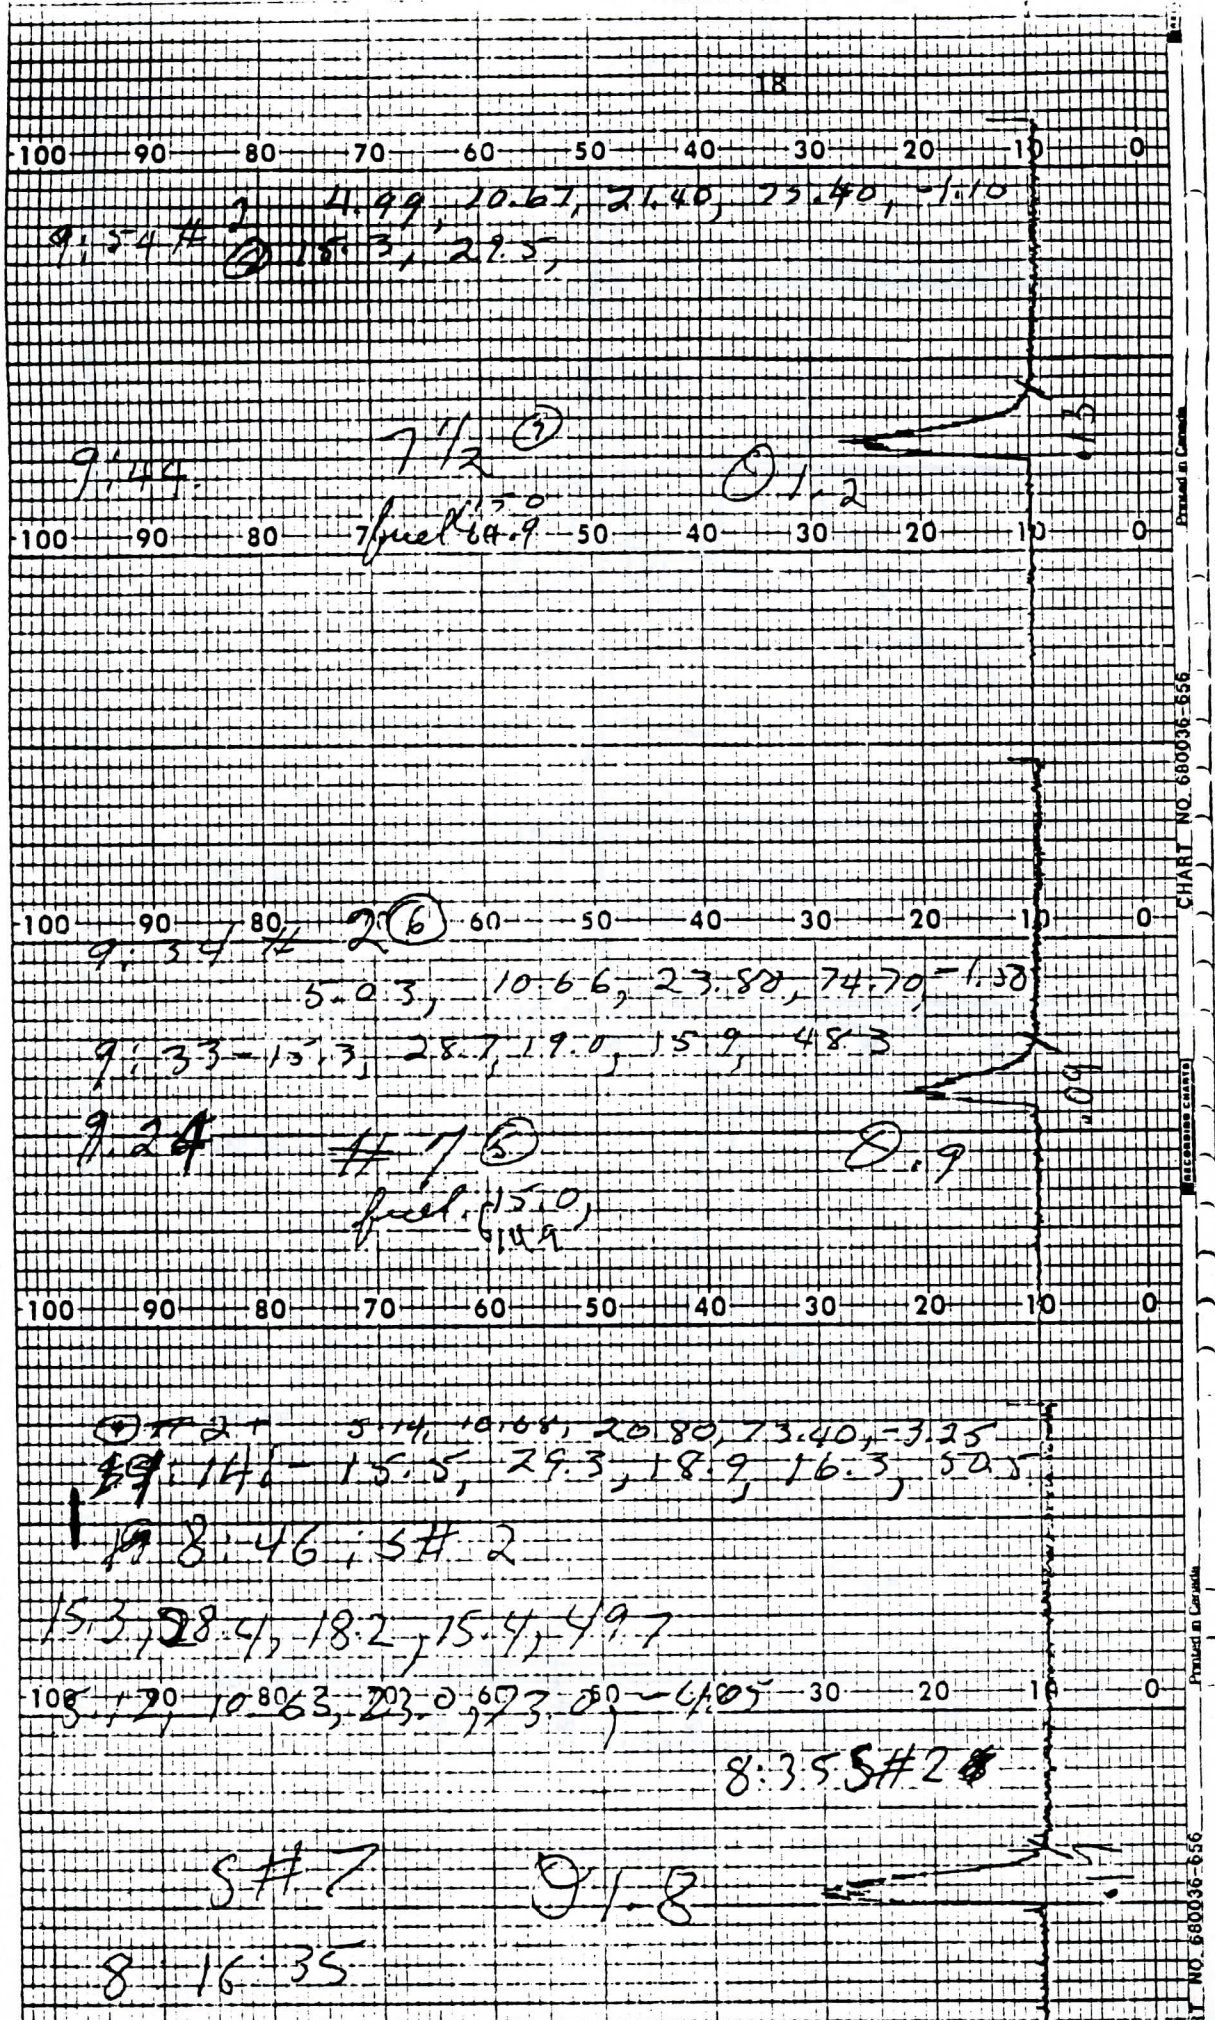 18
100 90 80 70 60 50 40 30 20 10 0
4.99, 10.67, 21.40, 75.40, -1.10
9:54 # 2 15.3, 29.5,
9:44. 7 1/2 1.2 .13
fuel 15.0
64.9
100 90 80 7 50 40 30 20 10 0
Printed in Canada
CHART NO. 680036-656
100 90 80 60 50 40 30 20 10 0
9:34 # 2 6
5.03, 10.66, 23.80, 74.70, -1.50
9:33 - 15.3, 28.7, 19.0, 15.9, 48.3
9.24 # 7 5 .9 .09
fuel. 15.0,
14.9
RECORDING CHARTS
100 90 80 70 60 50 40 30 20 10 0
4 # 2 5.14, 10.68, 20.80, 73.40, -3.25
9:14: - 15.5, 29.3, 18.9, 16.3, 50.5
8:46; S# 2
15.3, 28.4, 18.2, 15.4, 49.7
100 90 80 70 60 50 30 20 10 0
5.12, 10.63, 23.0, 73.0, -4.05
Printed in Canada
8:35 S#2
S#7 1.8
8 16 35
T NO. 680036-656